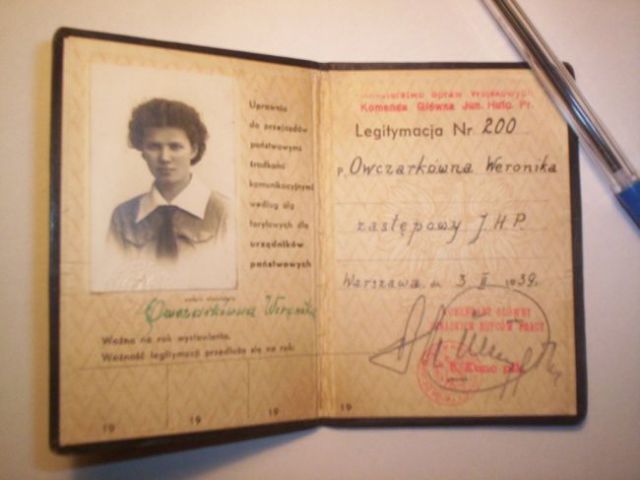 Uprawnia
do przejazdów
państwowymi
środkami
komunikacyjnymi
według ulg
taryfowych dla
urzędników
państwowych
Owczarkówna Weronika
Ważna na rok wystawienia.
Ważność legitymacji przedłuża się na rok:
19 19 19 19
Spraw Wojskowych
Komenda Główna Jun. Hufc. Pr.
Legitymacja Nr 200
p. Owczarkówna Weronika
zastępowy J.H.P.
Warszawa, d. 3 II 1939.
KOMENDANT GŁÓWNY
JUNACKICH HUFCÓW PRACY